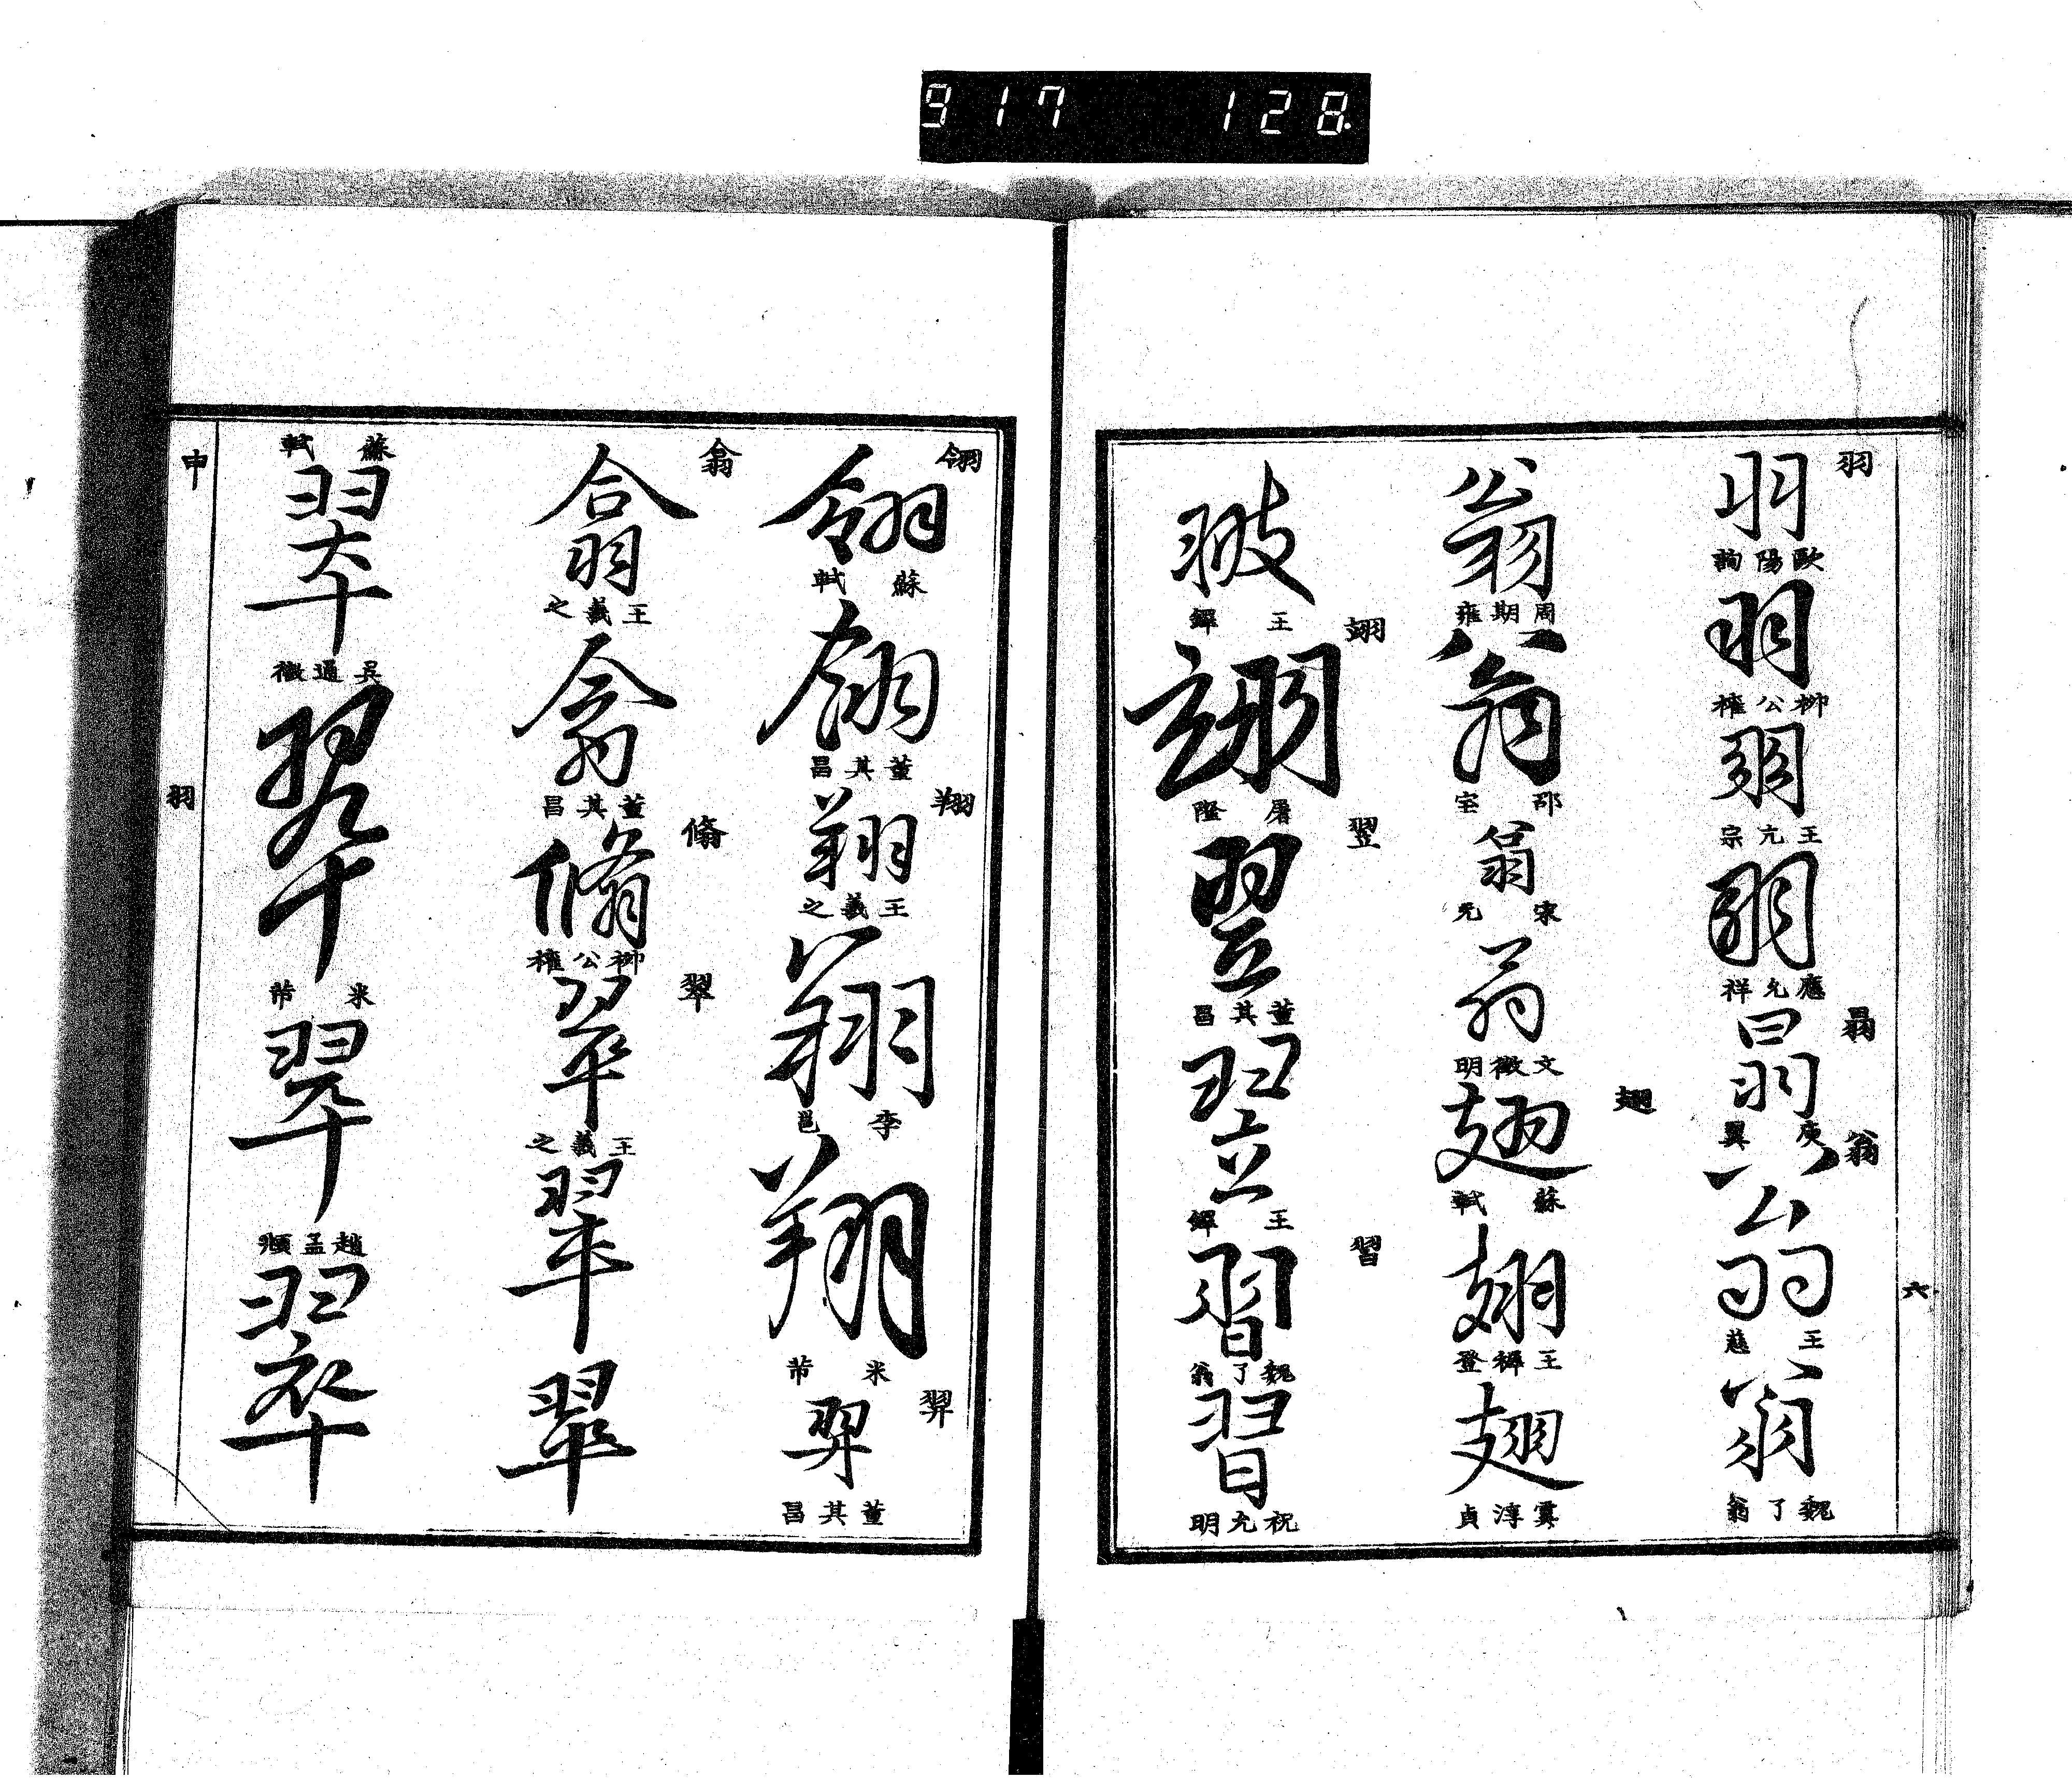 917 128
羽
羽
歐陽詢
羽
柳公權
羽
王亢宗
羽
應允祥
翁
翁
王慈
翁
魏了翁
六
翁
周期雍
翁
邵宝
翁
宋克
翁
文徵明
翅
翅
蘇軾
翅
王穉登
翅
貞淳
王鐸
翊
翊
屠隆
翌
翌
董其昌
翌
王鐸
習
習
魏了翁
習
祝允明
翎
翎
蘇軾
翎
董其昌
翔
翔
王羲之
翔
李邕
翔
米芾
羿
羿
董其昌
翕
翕
王羲之
翕
董其昌
翛
翛
柳公權
翠
翠
王羲之
翠
翠
蘇軾
翠
吳通微
翠
米芾
翠
趙孟頫
翠
申
羽